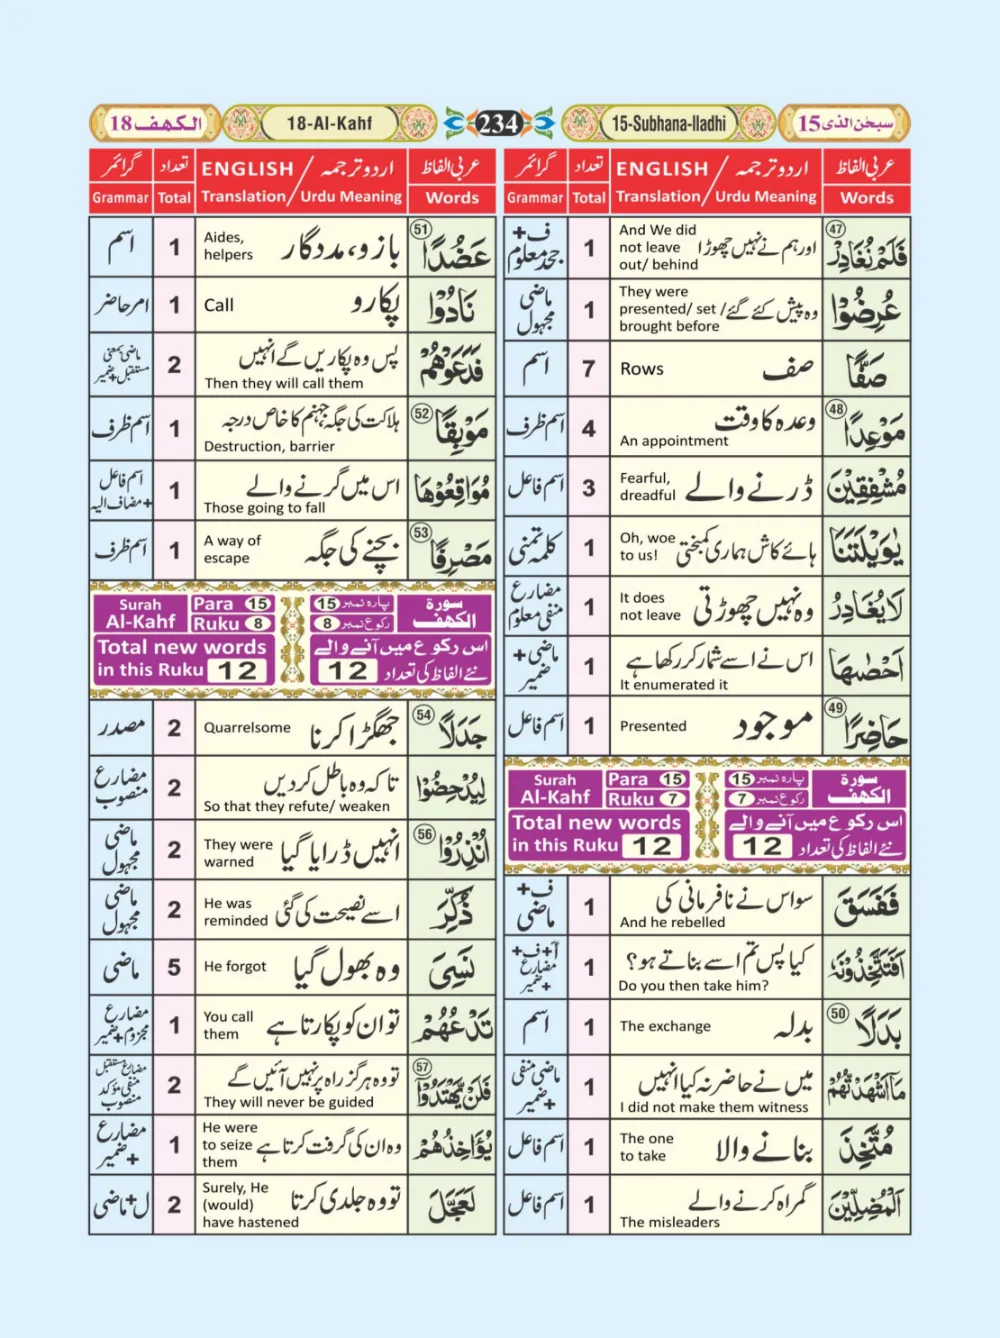 سبحٰن الذى 15
15-Subhana-lladhi
234
18-Al-Kahf
الكهف 18
عربی الفاظ
اردو ترجمہ / ENGLISH
تعداد
گرائمر
Words
Translation/ Urdu Meaning
Total
Grammar
47 فَلَمْ نُغَادِرْ
اور ہم نے نہیں چھوڑا
And We did
not leave
out/ behind
1
ف+
جحد معلوم
عُرِضُوْا
وہ پیش کئے گئے
They were
presented/ set /
brought before
1
ماضی
مجہول
صَفًّا
صف
Rows
7
اسم
48 مَوْعِدًا
وعدہ کا وقت
An appointment
4
اسم ظرف
مُشْفِقِيْنَ
ڈرنے والے
Fearful,
dreadful
3
اسم فاعل
يٰوَيْلَتَنَا
ہائے کاش ہماری کمبختی
Oh, woe
to us!
1
کلمہ تمنی
لَا يُغَادِرُ
وہ نہیں چھوڑتی
It does
not leave
1
مضارع
منفی معلوم
اَحْصٰىهَا
اس نے اسے شمار کر رکھا ہے
It enumerated it
1
ماضی+
ضمیر
49 حَاضِرًا
موجود
Presented
1
اسم فاعل
سورة
الكهف
پارہ نمبر 15
رکوع نمبر 7
Para 15
Ruku 7
Surah
Al-Kahf
اس رکوع میں آنے والے
نئے الفاظ کی تعداد 12
Total new words
in this Ruku 12
فَفَسَقَ
سو اس نے نافرمانی کی
And he rebelled
1
ف+
ماضی
اَفَتَتَّخِذُوْنَهٗ
کیا پس تم اسے بناتے ہو؟
Do you then take him?
1
أ+ف+
مضارع
+ضمیر
50 بَدَلًا
بدلہ
The exchange
1
اسم
مَاۤ اَشْهَدْتُّهُمْ
میں نے حاضر نہ کیا انہیں
I did not make them witness
1
ماضی منفی
+ضمیر
مُتَّخِذَ
بنانے والا
The one
to take
1
اسم فاعل
الْمُضِلِّيْنَ
گمراہ کرنے والے
The misleaders
1
اسم فاعل
عربی الفاظ
اردو ترجمہ / ENGLISH
تعداد
گرائمر
Words
Translation/ Urdu Meaning
Total
Grammar
51 عَضُدًا
بازو، مددگار
Aides,
helpers
1
اسم
نَادُوْا
پکارو
Call
1
امر حاضر
فَدَعَوْهُمْ
پس وہ پکاریں گے انہیں
Then they will call them
2
ماضی بمعنی
مستقبل+ضمیر
52 مَوْبِقًا
ہلاکت کی جگہ جہنم کا خاص درجہ
Destruction, barrier
1
اسم ظرف
مُوَاقِعُوْهَا
اس میں گرنے والے
Those going to fall
1
اسم فاعل
+مضاف الیہ
53 مَصْرِفًا
بچنے کی جگہ
A way of
escape
1
اسم ظرف
سورة
الكهف
پارہ نمبر 15
رکوع نمبر 8
Para 15
Ruku 8
Surah
Al-Kahf
اس رکوع میں آنے والے
نئے الفاظ کی تعداد 12
Total new words
in this Ruku 12
54 جَدَلًا
جھگڑا کرنا
Quarrelsome
2
مصدر
لِيُدْحِضُوْا
تاکہ وہ باطل کردیں
So that they refute/ weaken
2
مضارع
منصوب
56 اُنْذِرُوْا
انہیں ڈرایا گیا
They were
warned
2
ماضی
مجہول
ذُكِّرَ
اسے نصیحت کی گئی
He was
reminded
2
ماضی
مجہول
نَسِىَ
وہ بھول گیا
He forgot
5
ماضی
تَدْعُهُمْ
تو ان کو پکارتا ہے
You call
them
1
مضارع
مجزوم+ضمیر
57 فَلَنْ يَّهْتَدُوْا
تو وہ ہرگز راہ پر نہیں آئیں گے
They will never be guided
2
مضارع مستقبل
منفی مؤکد
منصوب
يُؤَاخِذُهُمْ
وہ ان کی گرفت کرتا ہے
He were
to seize
them
1
مضارع
+ضمیر
لَعَجَّلَ
تو وہ جلدی کرتا
Surely, He
(would)
have hastened
2
ل+ماضی